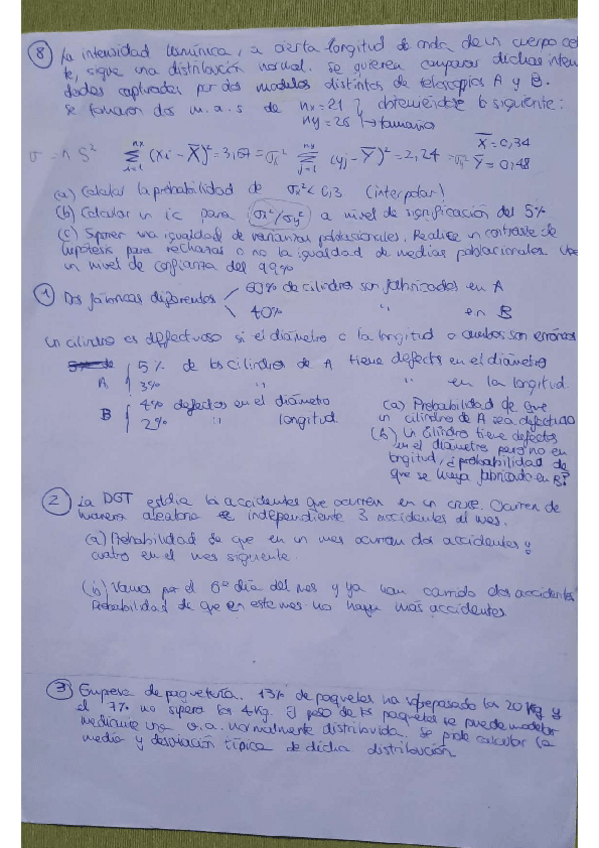 8 La intensidad lumínica, a cierta longitud de onda de un cuerpo cel
te, sigue una distribución normal. Se quieren comparar dichas inten
dades captadas por dos modelos distintos de telescopios A y B.
Se tomaron dos m.a.s de nx=21 } obteniéndose lo siguiente:
ny=26 → tamaño
σ = n S² Σ (xi - X̄)² = 3,67 = σx² Σ (yj - Ȳ)² = 2,24 = σy² X̄ = 0,34 Ȳ = 0,48
(a) Calcular la probabilidad de σx² < 0,3 (interpolar)
(b) Calcular un ic para σx²/σy² a nivel de significación del 5%
(c) Suponer una igualdad de varianzas poblacionales. Realice un contraste de
hipótesis para rechazar o no la igualdad de medias poblacionales. Use
un nivel de confianza del 99%
1 Dos fábricas diferentes 60% de cilindros son fabricados en A
40% " en B
Un cilindro es defectuoso si el diámetro o la longitud o ambos son erróneos
A { 5% de los cilindros de A tiene defecto en el diámetro
3% " " en la longitud
B { 4% defectos en el diámetro
2% " longitud.
(a) Probabilidad de que
un cilindro de A sea defectuoso
(b) Un cilindro tiene defectos
en el diámetro pero no en
longitud, ¿probabilidad de
que se haya fabricado en B?
2 La DGT estudia los accidentes que ocurren en un cruce. Ocurren de
manera aleatoria e independiente 3 accidentes al mes.
(a) Probabilidad de que en un mes ocurran dos accidentes y
cuatro en el mes siguiente.
(b) Vamos por el 6º día del mes y ya han ocurrido dos accidentes
Probabilidad de que en este mes no haya más accidentes
3 Empresa de paquetería. 13% de paquetes ha sobrepasado los 20 kg y
el 7% no supera los 4 kg. El peso de los paquetes se puede modelar
mediante una v.a. normalmente distribuida. Se pide calcular la
media y desviación típica de dicha distribución